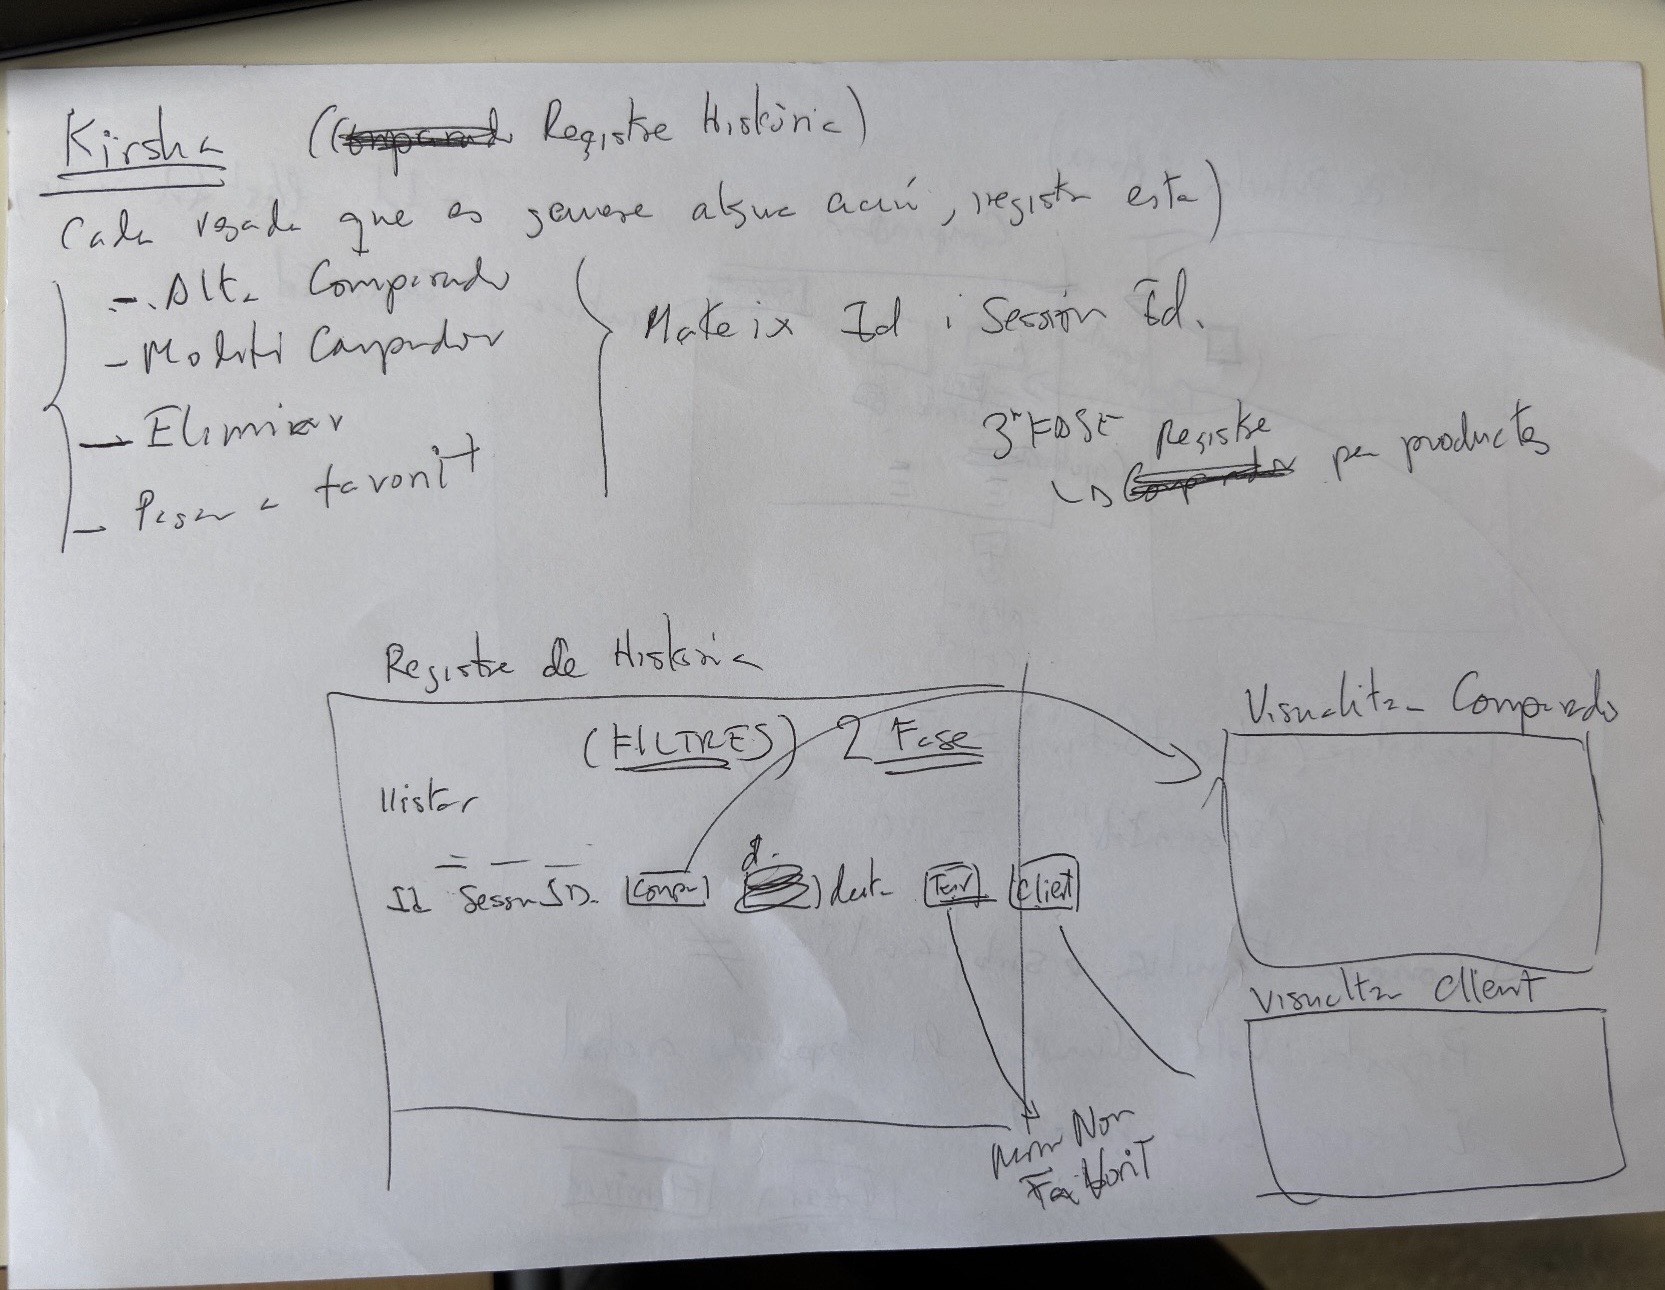 Kirsha (Registre Història)
Cada vegada que es genere alguna acció, registra esta)
- Alta Comparado
- Modifi Comparador
- Eliminar
- Pasar a favorit
Mateix Id i Session Id.
3ª FASE Registre
per productes
Registre de Història
(FILTRES) 2 Fase
llistar
Id Sesson ID. Compar data Fav. Client
Nom Non
Favorit
Visualitza Comparado
Visualitza Client